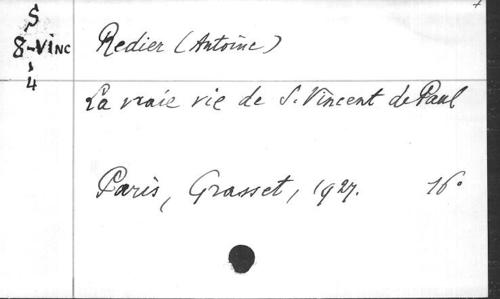 S
8-VINC
4
Redier (Antoine)
La vraie vie de S. Vincent de Paul
Paris, Grasset, 1927. 16°